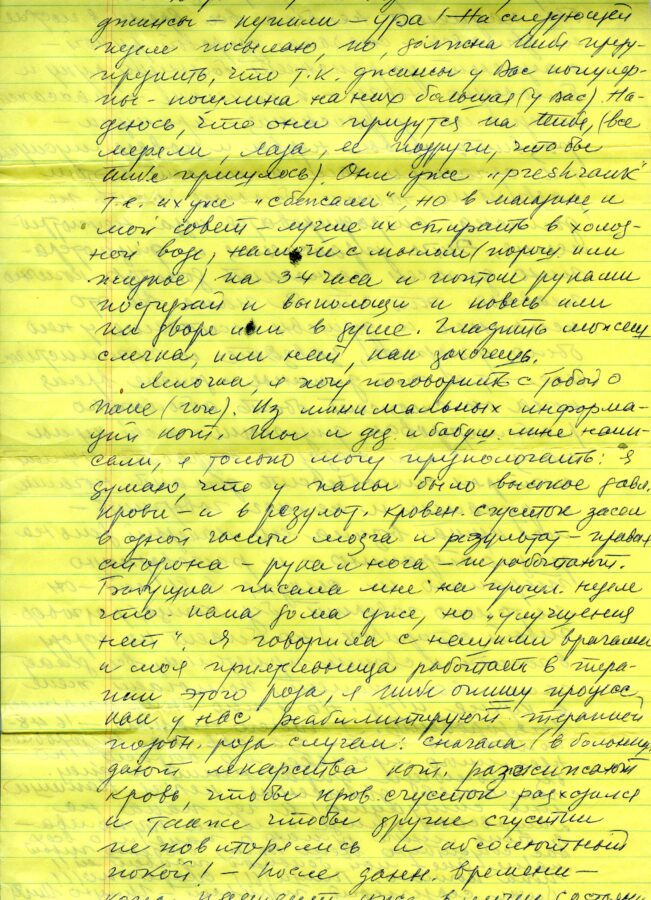 джинсы – купили – ура! На следующей
неделе посылаю, но, должна тебя преду-
предить, что т.к. джинсы у Вас популяр-
ны – пошлина на них большая (у вас). На-
деюсь, что они придутся на тебя, (все
мерели, Лаза, её подруги, что бы
тебе пришлось). Они уже "preshrank"
т.е. их уже "сбежали", но в магазине и
мой совет – лучше их стирать в холод-
ной воде, намочи с мылом (порош. или
жидкое) на 3-4 часа и потом руками
постирай и выполощи и повесь или
на дворе или в душе. Гладить можешь
слегка, или нет, как захочешь.
Леночка, я хочу поговорить с тобой о
папе (Гоге). Из минимальных информа-
ций кот. ты и дед. и бабуш. мне напи-
сали, я только могу предпологать: Я
думаю, что у папы было высокое давл.
крови – и в результ. кровен. сгусток засел
в одной части мозга и результат – правая
сторона – рука и нога – не работают.
Бабушка писала мне на прошл. неделе
что папа дома уже, но "улучшения
нет". Я говорила с нашими врачами
и моя приятельница работает в тера-
пии этого рода, я тебе опишу процесс,
как у нас реабилитируют терапией
подобн. рода случаи: сначала (в больниц.
дают лекарства кот. разжижают
кровь, чтобы кров. сгусток разходился
и также чтобы другие сгустки
не повторялись и абсолютный
покой! – После данн. времени –
когда пациент уже в лучш. состоян